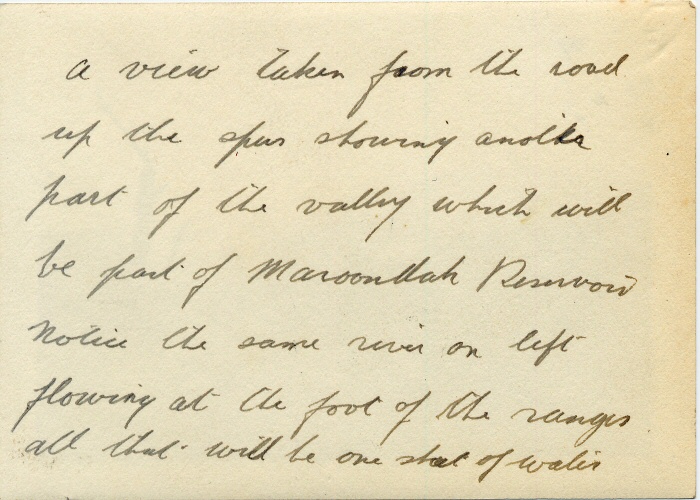 a view taken from the road
up the spur showing another
part of the valley which will
be part of Maroondah Reservoir
Notice the same river on left
flowing at the foot of the ranges
all that will be one sheet of water